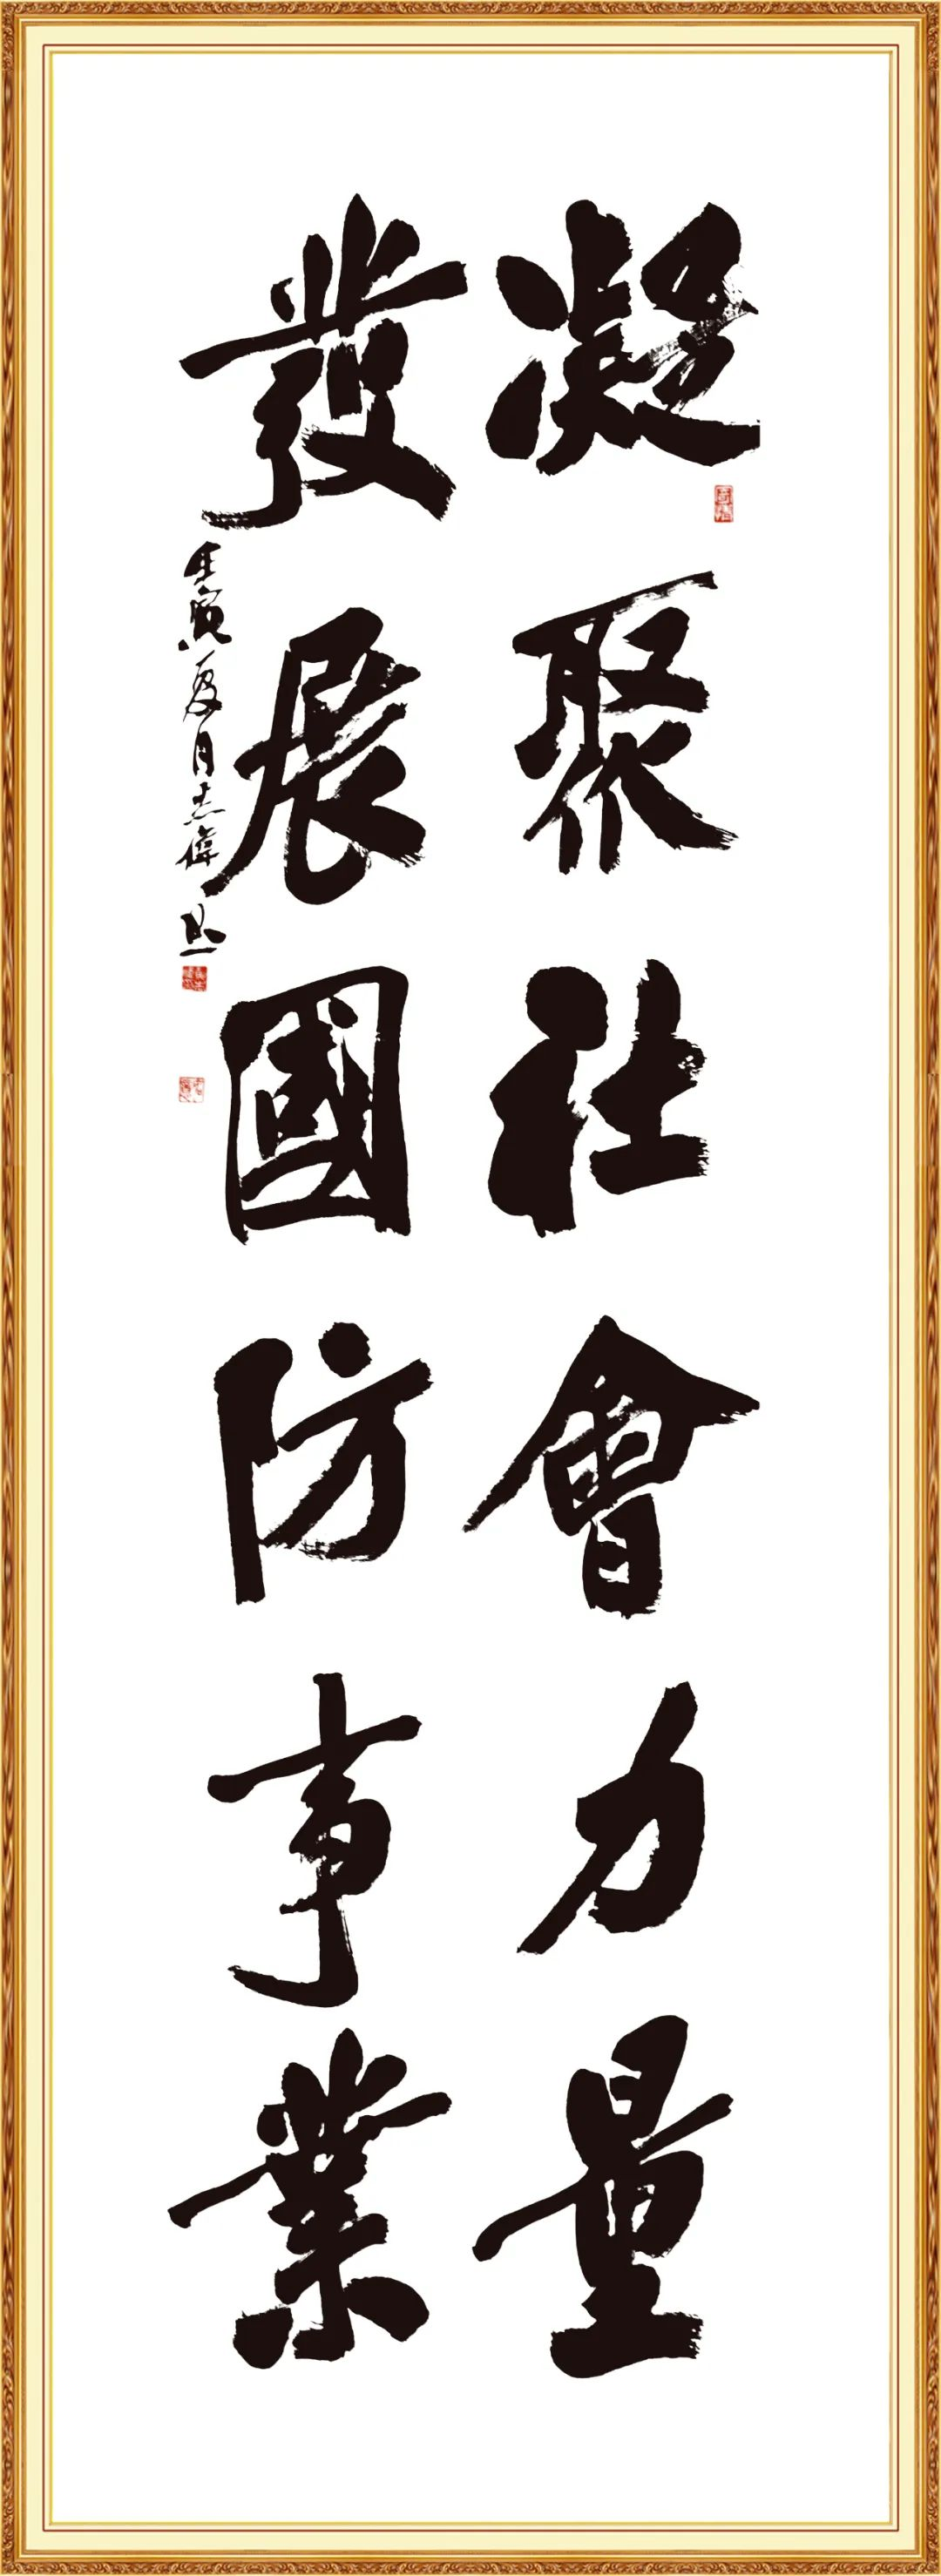 凝聚社會力量
發展國防事業
壬寅夏月志偉